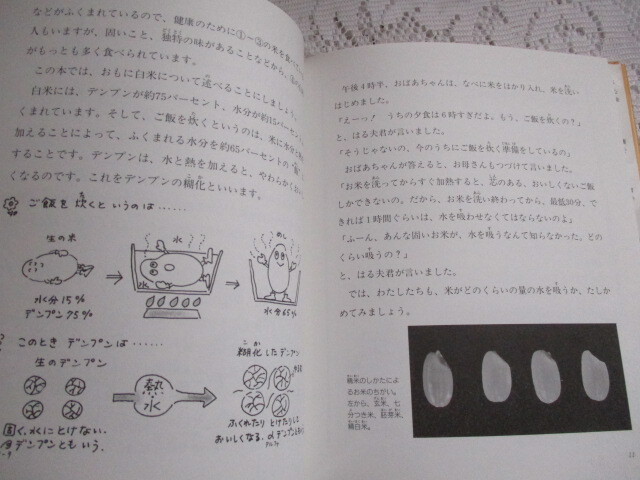 などがふくまれているので、健康のために①〜③の米を食べ
人もいますが、固いこと、独特の味があることなどから、
がもっとも多く食べられています。
この本では、おもに白米について述べることにしましょう。
白米には、デンプンが約75パーセント、水分が約15パーセン
くまれています。そして、ご飯を炊くというのは、米に水と
加えることによって、ふくまれる水分を約65パーセントの
することです。デンプンは、水と熱を加えると、やわらかくお
くなるのです。これをデンプンの糊化といいます。
ご飯を炊くというのは……
生の米
水分15%
デンプン75%
水
水
めし
水分65%
このときデンプンは……
生のデンプン
固く、水にとけない。
デンプンともいう。
熱
水
糊化したデンプン
ふくれたりとけたりして
おいしくなる。αデンプン
午後4時半、おばあちゃんは、なべに米をはかり入れ、米を洗い
はじめました。
「えーっ！　うちの夕食は6時すぎだよ。もう、ご飯を炊くの？」
と、はる大君が言いました。
「そうじゃないの、今のうちにご飯を炊く準備をしているの」
おばあちゃんが答えると、お母さんもつづけて言いました。
「お米を洗ってからすぐ加熱すると、芯のある、おいしくないご飯
しかできないの。だから、お米を洗い終わってから、最低30分、で
きれば1時間ぐらいは、水を吸わせなくてはならないのよ」
「ふーん、あんな固いお米が、水を吸うなんて知らなかった。どの
くらい吸うの？」
と、はる大君が言いました。
では、わたしたちも、米がどのくらいの量の水を吸うか、たしか
めてみましょう。
精米のしかたによ
るお米のちがい。
左から、玄米、七
分づき米、胚芽米、
精白米。
13